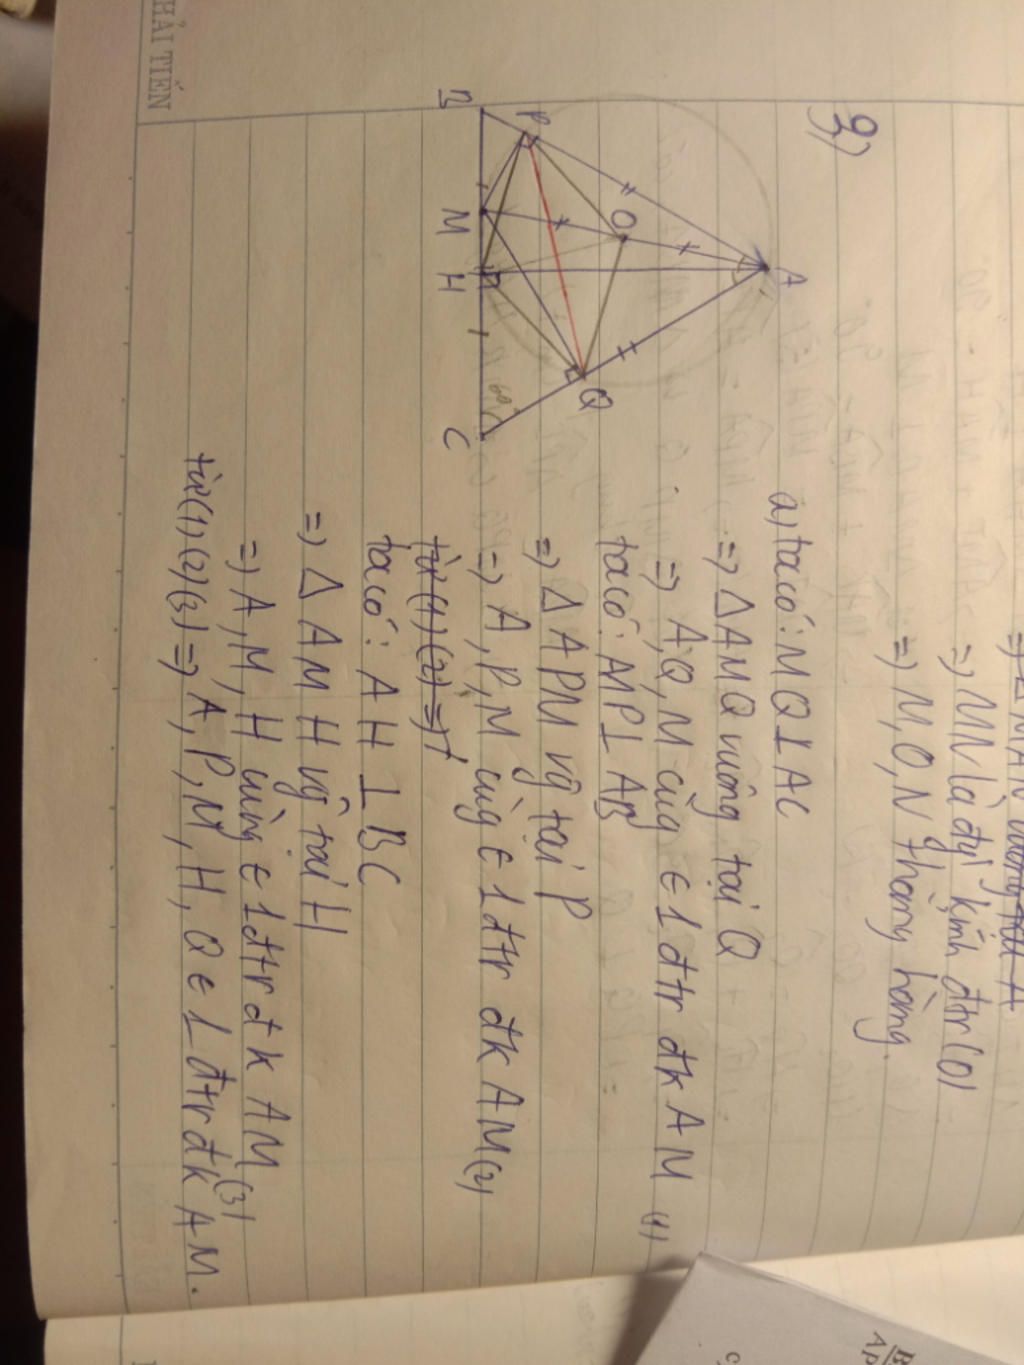 HẢI TIẾN
=) MN là đg kính đtr (O)
=) M, O, N thẳng hàng.
9)
A
B
P
O
M
H
Q
C
60°
a) ta có: MQ ⊥ AC
=) Δ AMQ vuông tại Q
=) A, Q, M cùng ∈ 1 đtr đk AM (1)
ta có: MP ⊥ AB
=) Δ APM vg tại P
=) A, P, M cùng ∈ 1 đtr đk AM (2)
từ (1) (2) =)
ta có: AH ⊥ BC
=) Δ AMH vg tại H
=) A, M, H cùng ∈ 1 đtr đk AM (3)
từ (1) (2) (3) =) A, P, M, H, Q ∈ 1 đtr đk AM.